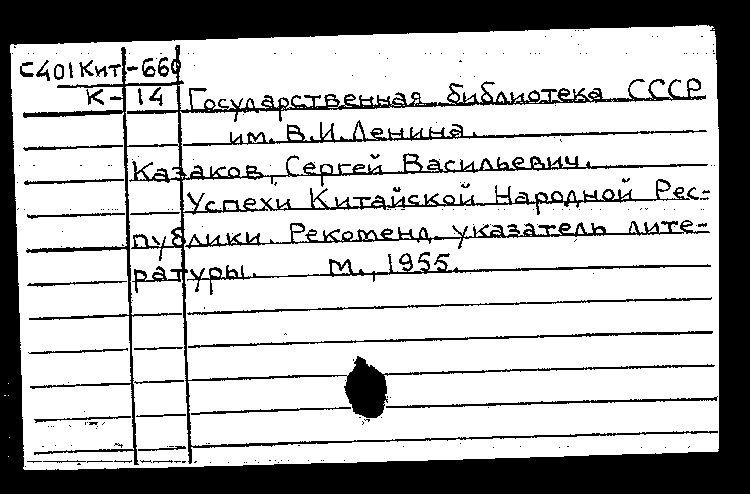 С401Кит-660
К-14 Государственная библиотека СССР
им. В.И.Ленина.
Казаков, Сергей Васильевич.
Успехи Китайской Народной Рес-
публики. Рекоменд. указатель лите-
ратуры. М., 1955.